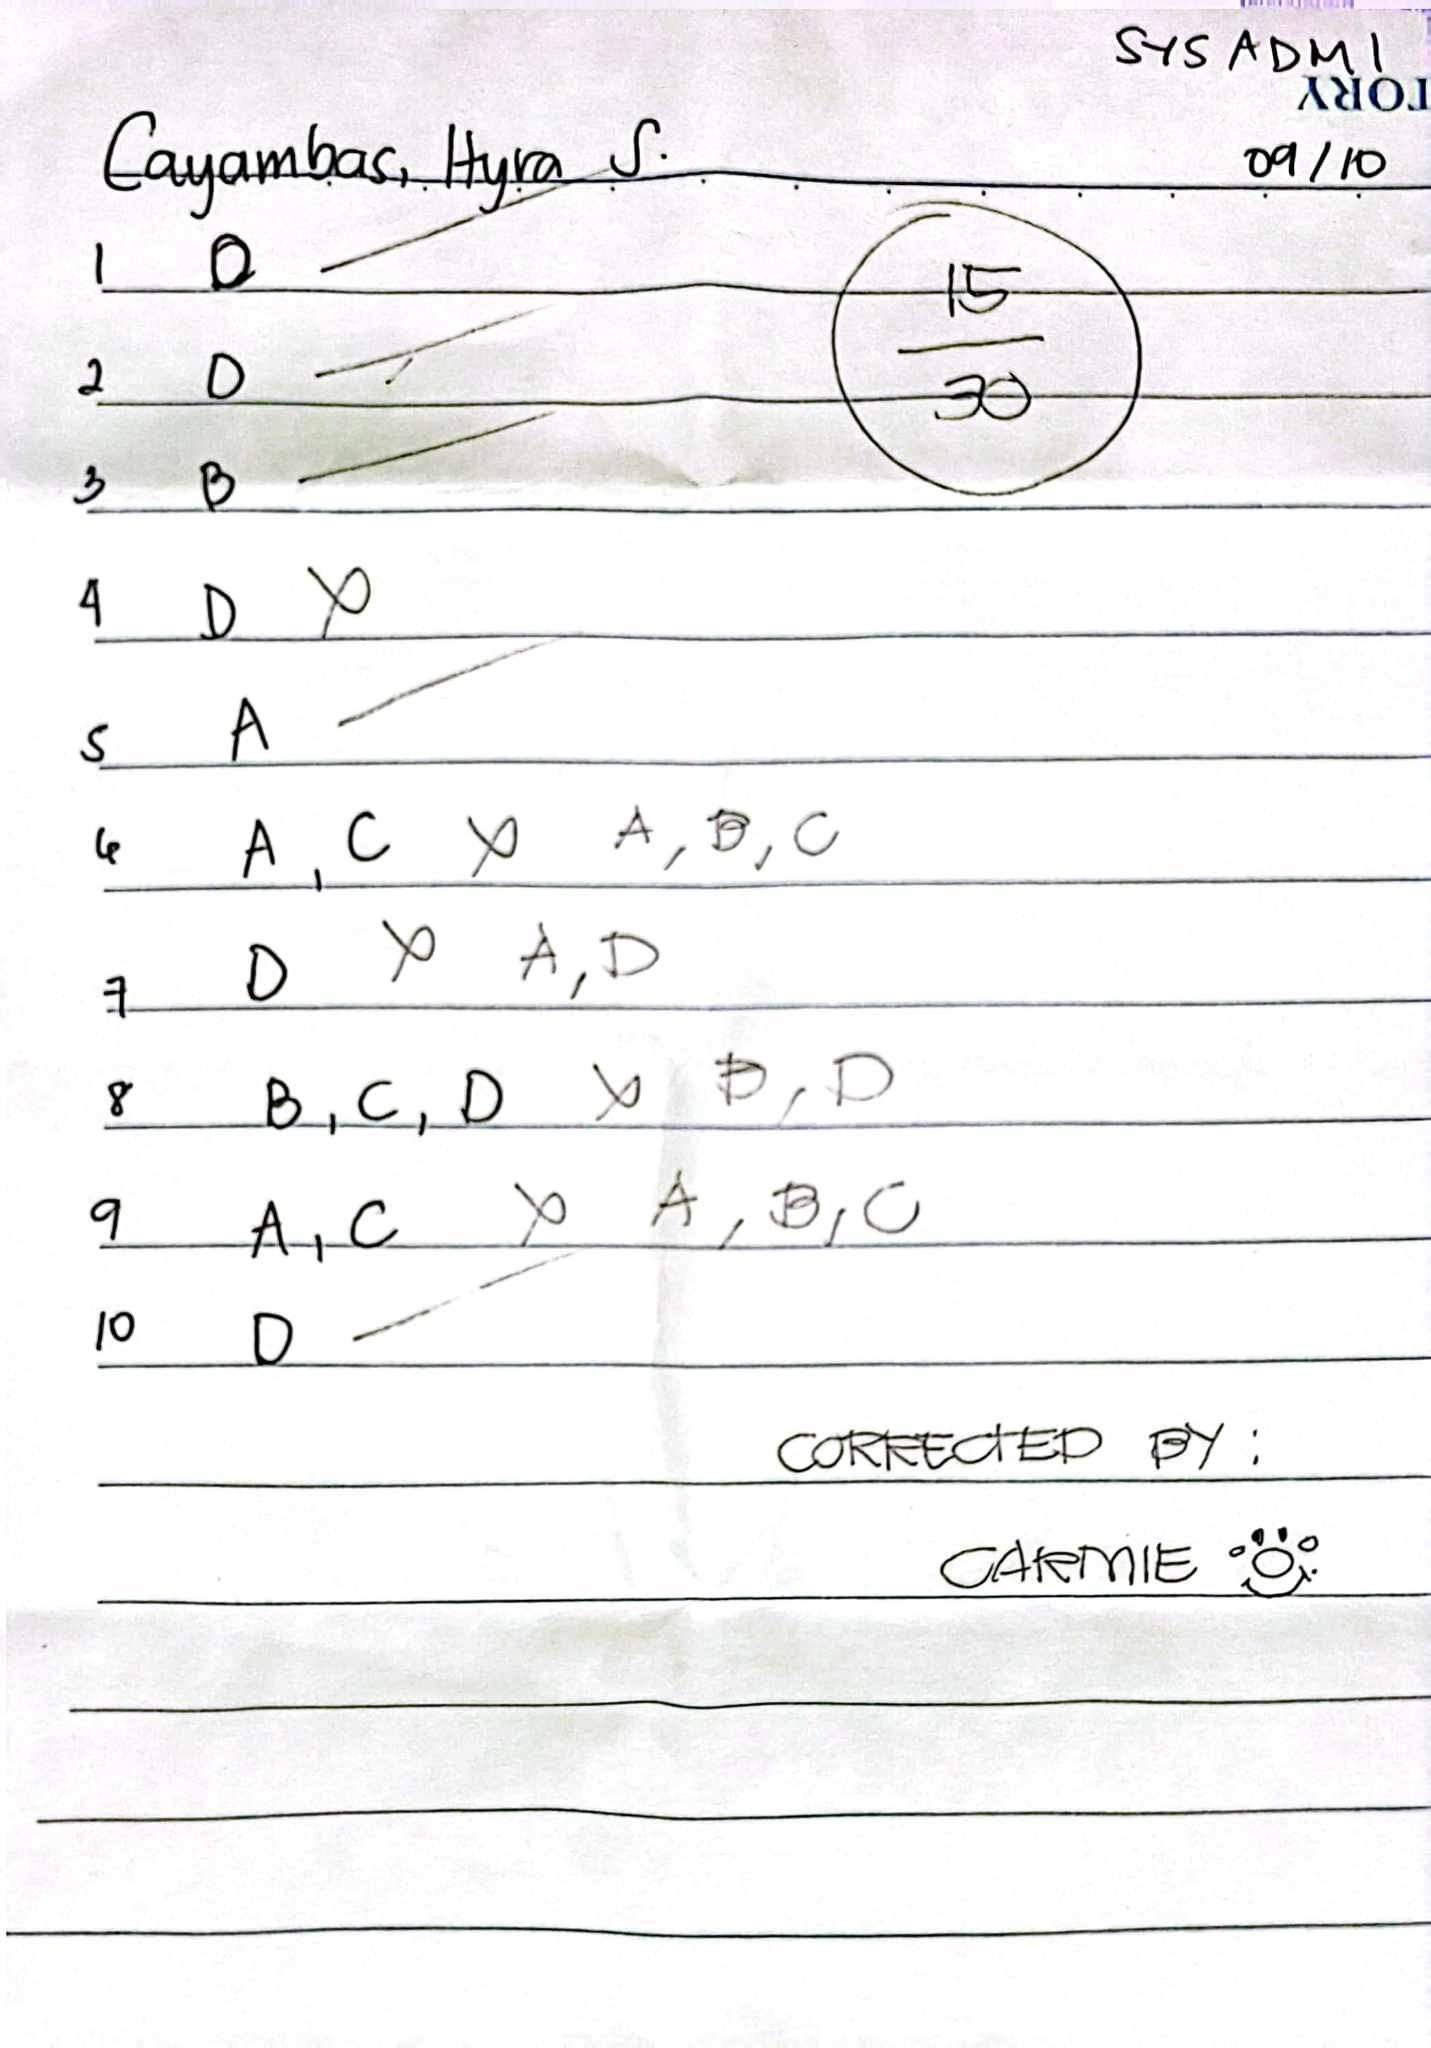 SYSADM1
TORY
Cayambas, Hyra S.
09/10
1 D
15
30
2 D
3 B
4 D X
5 A
6 A, C X A, B, C
7 D X A, D
8 B, C, D X B, D
9 A, C X A, B, C
10 D
CORRECTED BY:
CARMIE